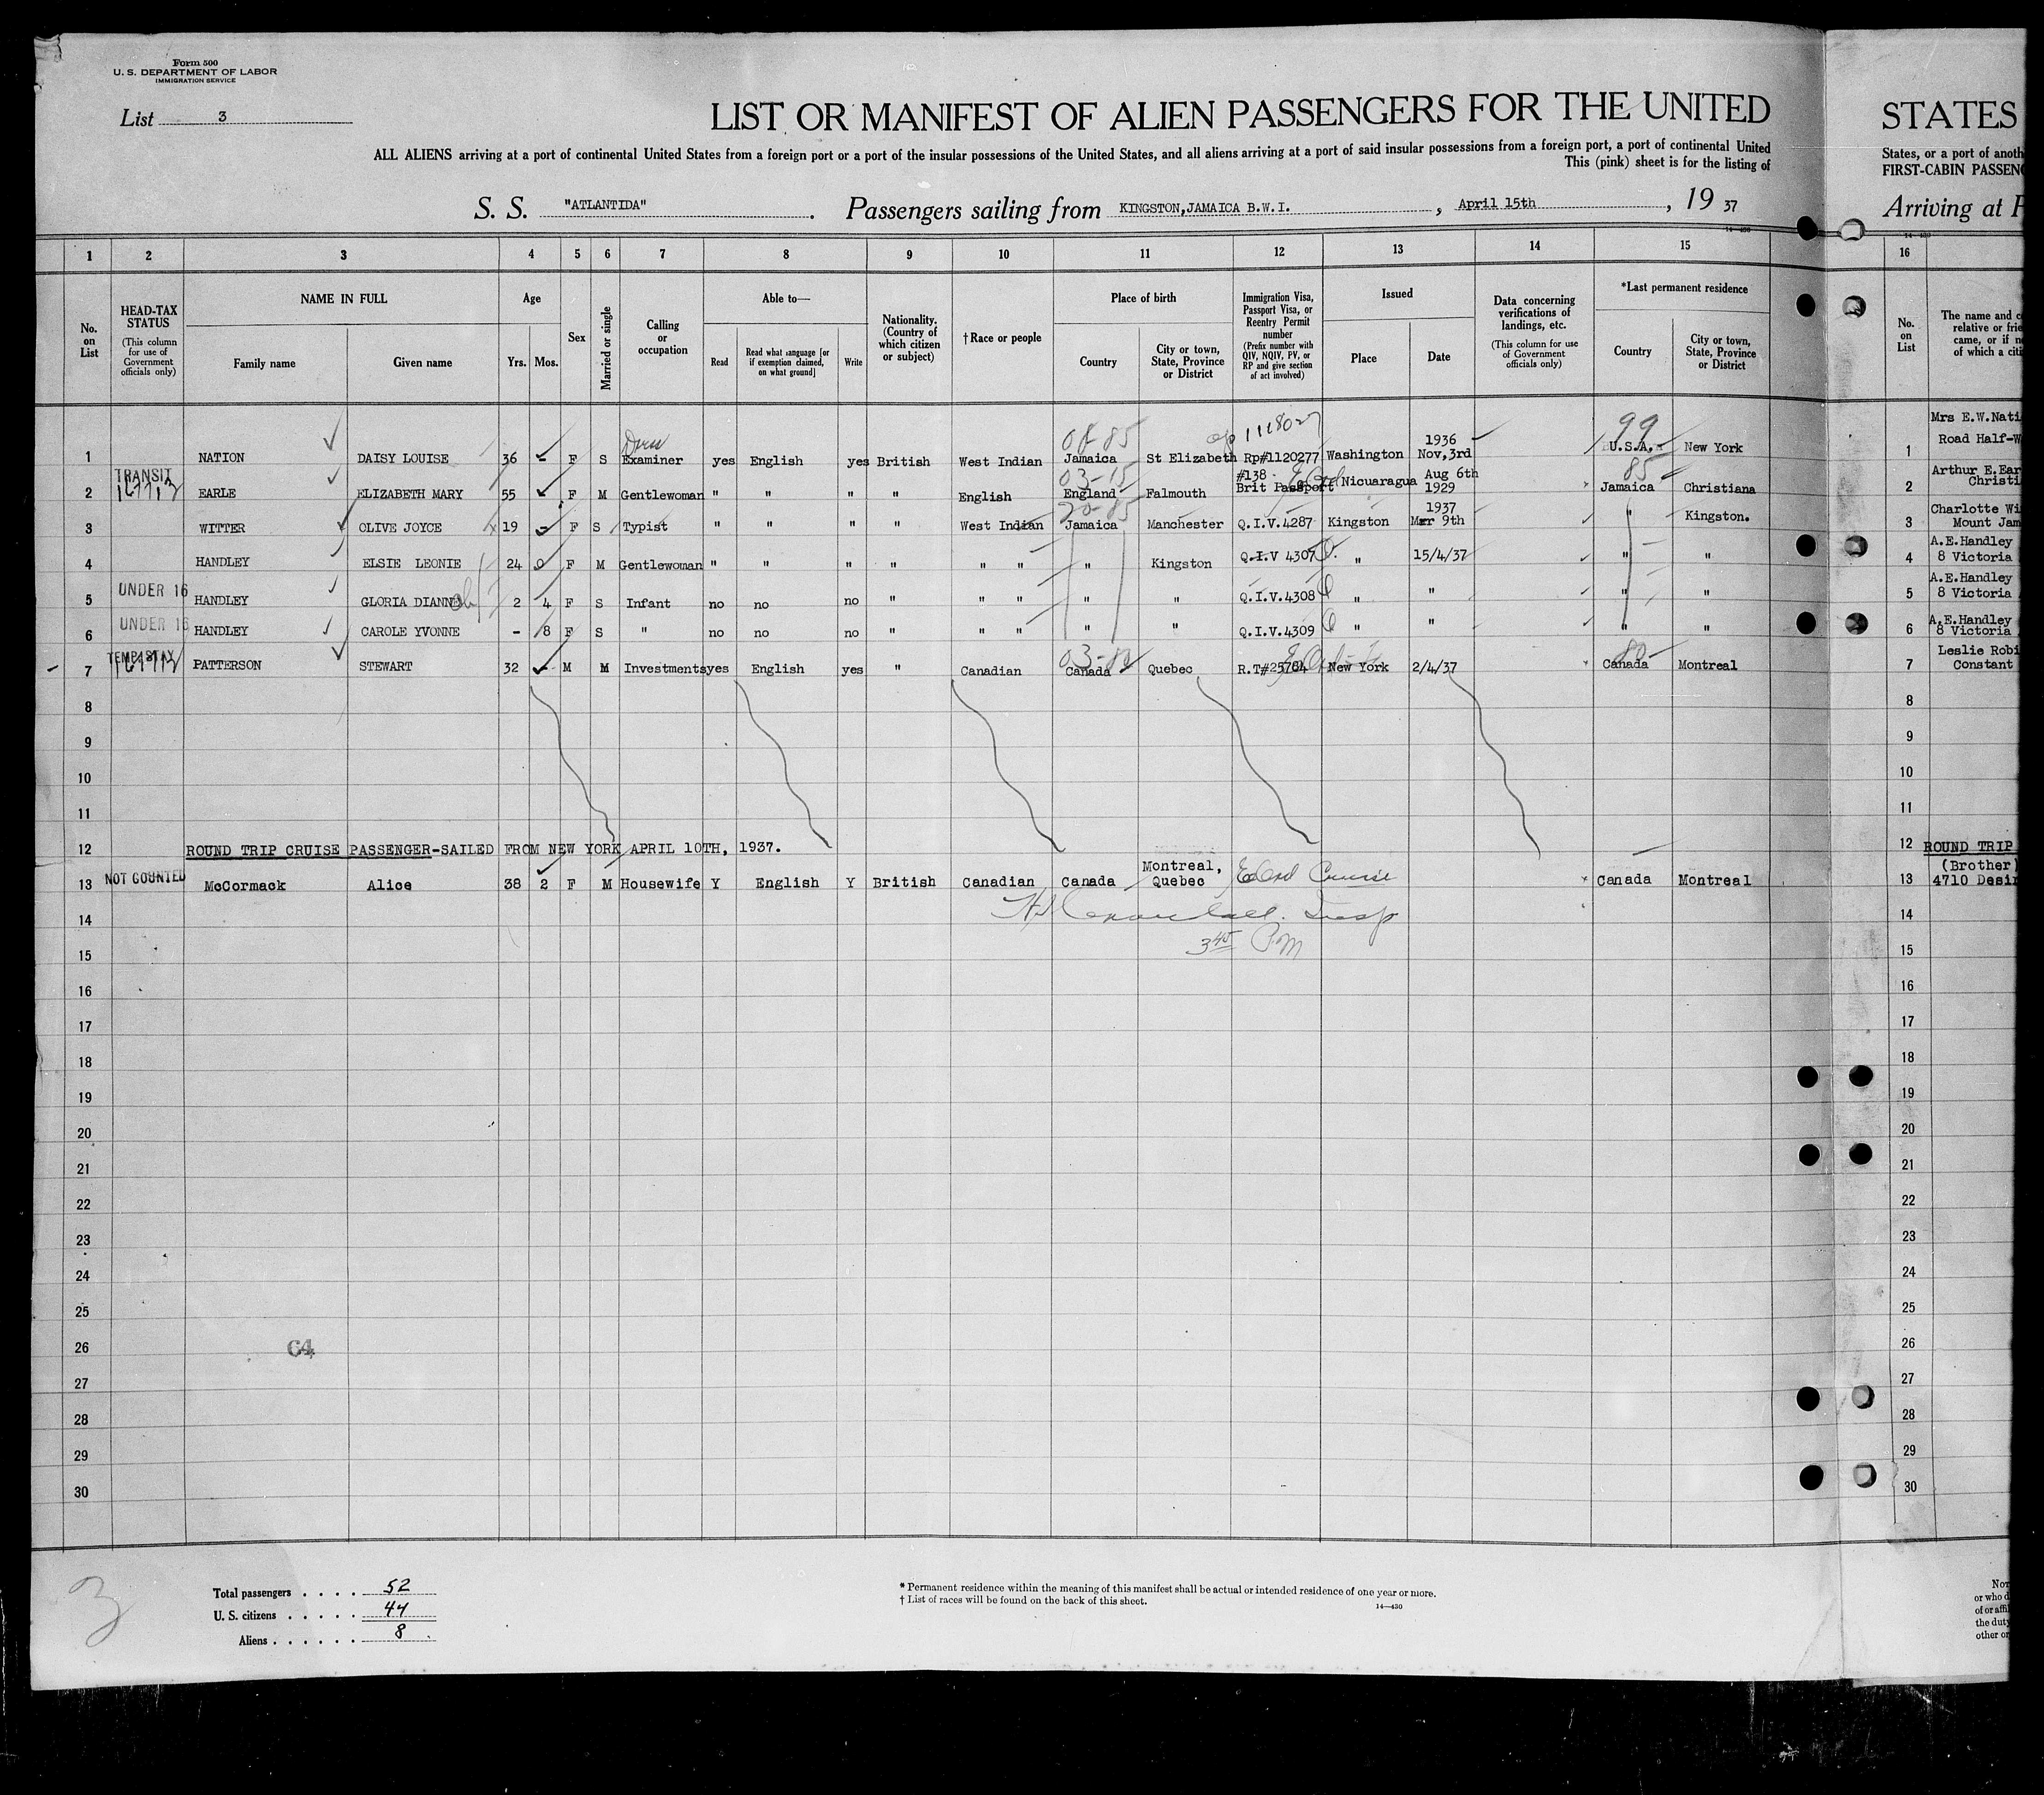 Form 500
U. S. DEPARTMENT OF LABOR
IMMIGRATION SERVICE
List 3
LIST OR MANIFEST OF ALIEN PASSENGERS FOR THE UNITED
ALL ALIENS arriving at a port of continental United States from a foreign port or a port of the insular possessions of the United States, and all aliens arriving at a port of said insular possessions from a foreign port, a port of continental United
This (pink) sheet is for the listing of
S. S. "ATLANTIDA". Passengers sailing from KINGSTON,JAMAICA B.W.I., April 15th, 19 37
1 2 3 4 5 6 7 8 9 10 11 12 13 14 15
No. on List
HEAD-TAX STATUS (This column for use of Government officials only)
NAME IN FULL
Family name
Given name
Age
Yrs. Mos.
Sex
Married or single
Calling or occupation
Able to—
Read
Read what language [or if exemption claimed, on what ground]
Write
Nationality. (Country of which citizen or subject)
†Race or people
Place of birth
Country
City or town, State, Province or District
Immigration Visa, Passport Visa, or Reentry Permit number (Prefix number with QIV, NQIV, PV, or RP and give section of act involved)
Issued
Place
Date
Data concerning verifications of landings, etc. (This column for use of Government officials only)
*Last permanent residence
Country
City or town, State, Province or District
08-85 1118027 1936 99
1 NATION DAISY LOUISE 36 - F S Examiner yes English yes British West Indian Jamaica St Elizabeth Rp#1120277 Washington Nov,3rd U.S.A. New York
TRANSIT 03-15 #138 Aug 6th 85
2 EARLE ELIZABETH MARY 55 F M Gentlewoman " " " " English England Falmouth Brit Passport Nicuaragua 1929 Jamaica Christiana
20-85 1937
3 WITTER OLIVE JOYCE 19 - F S Typist " " " " West Indian Jamaica Manchester Q.I.V.4287 Kingston Mar 9th " Kingston.
4 HANDLEY ELSIE LEONIE 24 0 F M Gentlewoman " " " " " " " Kingston Q.I.V 4307 " 15/4/37 " "
UNDER 16
5 HANDLEY GLORIA DIANNE 2 4 F S Infant no no no " " " " " Q.I.V.4308 " " " "
UNDER 16
6 HANDLEY CAROLE YVONNE - 8 F S " no no no " " " " " Q.I.V.4309 " " " "
TEMP. STAY 80
7 PATTERSON STEWART 32 - M M Investments yes English yes " Canadian Canada Quebec R.T#25784 New York 2/4/37 Canada Montreal
8
9
10
11
12 ROUND TRIP CRUISE PASSENGER-SAILED FROM NEW YORK APRIL 10TH, 1937.
NOT COUNTED Montreal,
13 McCormack Alice 38 2 F M Housewife Y English Y British Canadian Canada Quebec Cruise Canada Montreal
14
3 45 PM
15
16
17
18
19
20
21
22
23
24
25
26 64
27
28
29
30
3
Total passengers . . . . 52
U. S. citizens . . . . . 44
Aliens . . . . . . 8
* Permanent residence within the meaning of this manifest shall be actual or intended residence of one year or more.
† List of races will be found on the back of this sheet.
14—430
STATES
States, or a port of anoth
FIRST-CABIN PASSENG
Arriving at
16
No. on List
The name and c
relative or frie
came, or if n
of which a citi
Mrs E.W.Nati
1 Road Half-W
Arthur E.Ear
2 Christi
Charlotte Wi
3 Mount Jam
A.E.Handley
4 8 Victoria
A.E.Handley
5 8 Victoria
A.E.Handley
6 8 Victoria
Leslie Robi
7 Constant
8
9
10
11
12 ROUND TRIP
(Brother)
13 4710 Desir
14
15
16
17
18
19
20
21
22
23
24
25
26
27
28
29
30
or who d
of or affi
the duty
other or